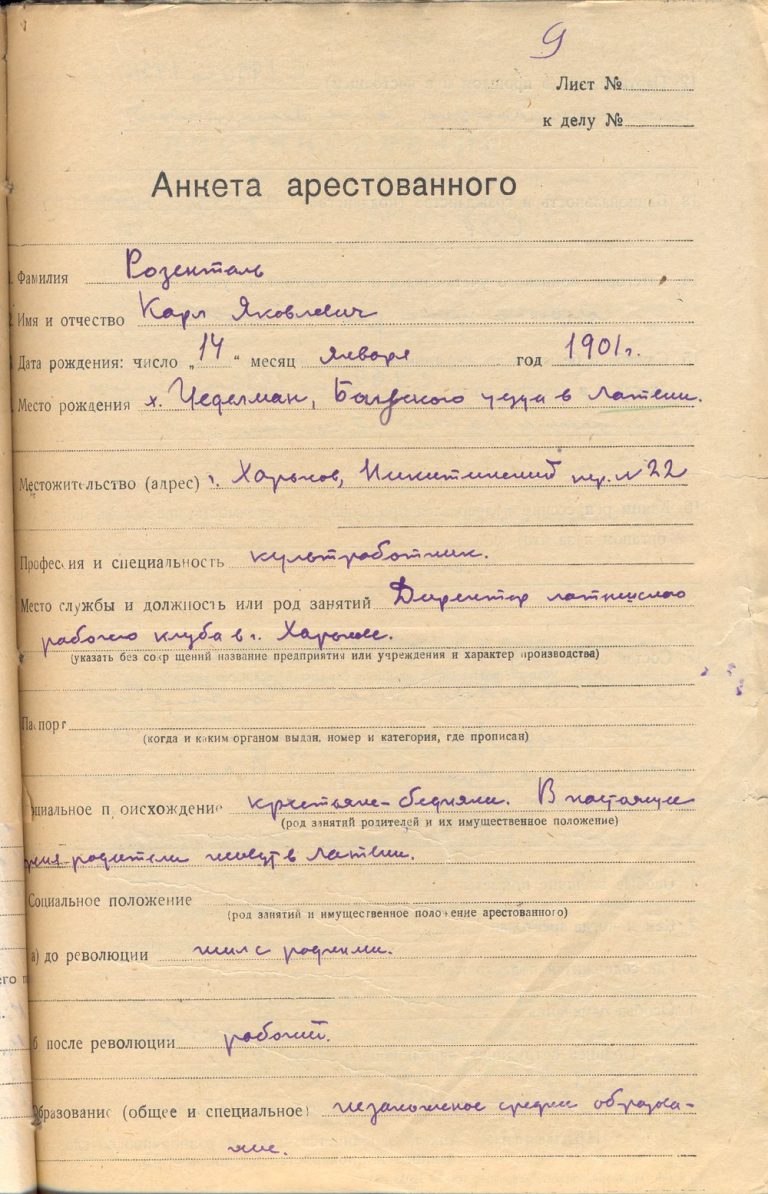 9
Лист №
к делу №
Анкета арестованного
1. Фамилия Розенталь
2. Имя и отчество Карл Яковлевич
Дата рождения: число „14“ месяц января год 1901 г.
Место рождения х. Чеделман, Бауского уезда в Латвии.
Местожительство (адрес) г. Харьков, Никитинский пер. № 22
Профессия и специальность культработник.
Место службы и должность или род занятий Директор латышского
рабочего клуба в г. Харькове.
(указать без сокр щений название предприятия или учреждения и характер производства)
Паспорт
(когда и каким органом выдан, номер и категория, где прописан)
оциальное п оисхождение крестьяне-бедняки. В настоящее
(род занятий родителей и их имущественное положение)
время родители живут в Латвии.
Социальное положение
(род занятий и имущественное положение арестованного)
а) до революции жил с родными.
б после революции рабочий.
Образование (общее и специальное) незаконченое среднее образова-
ние.